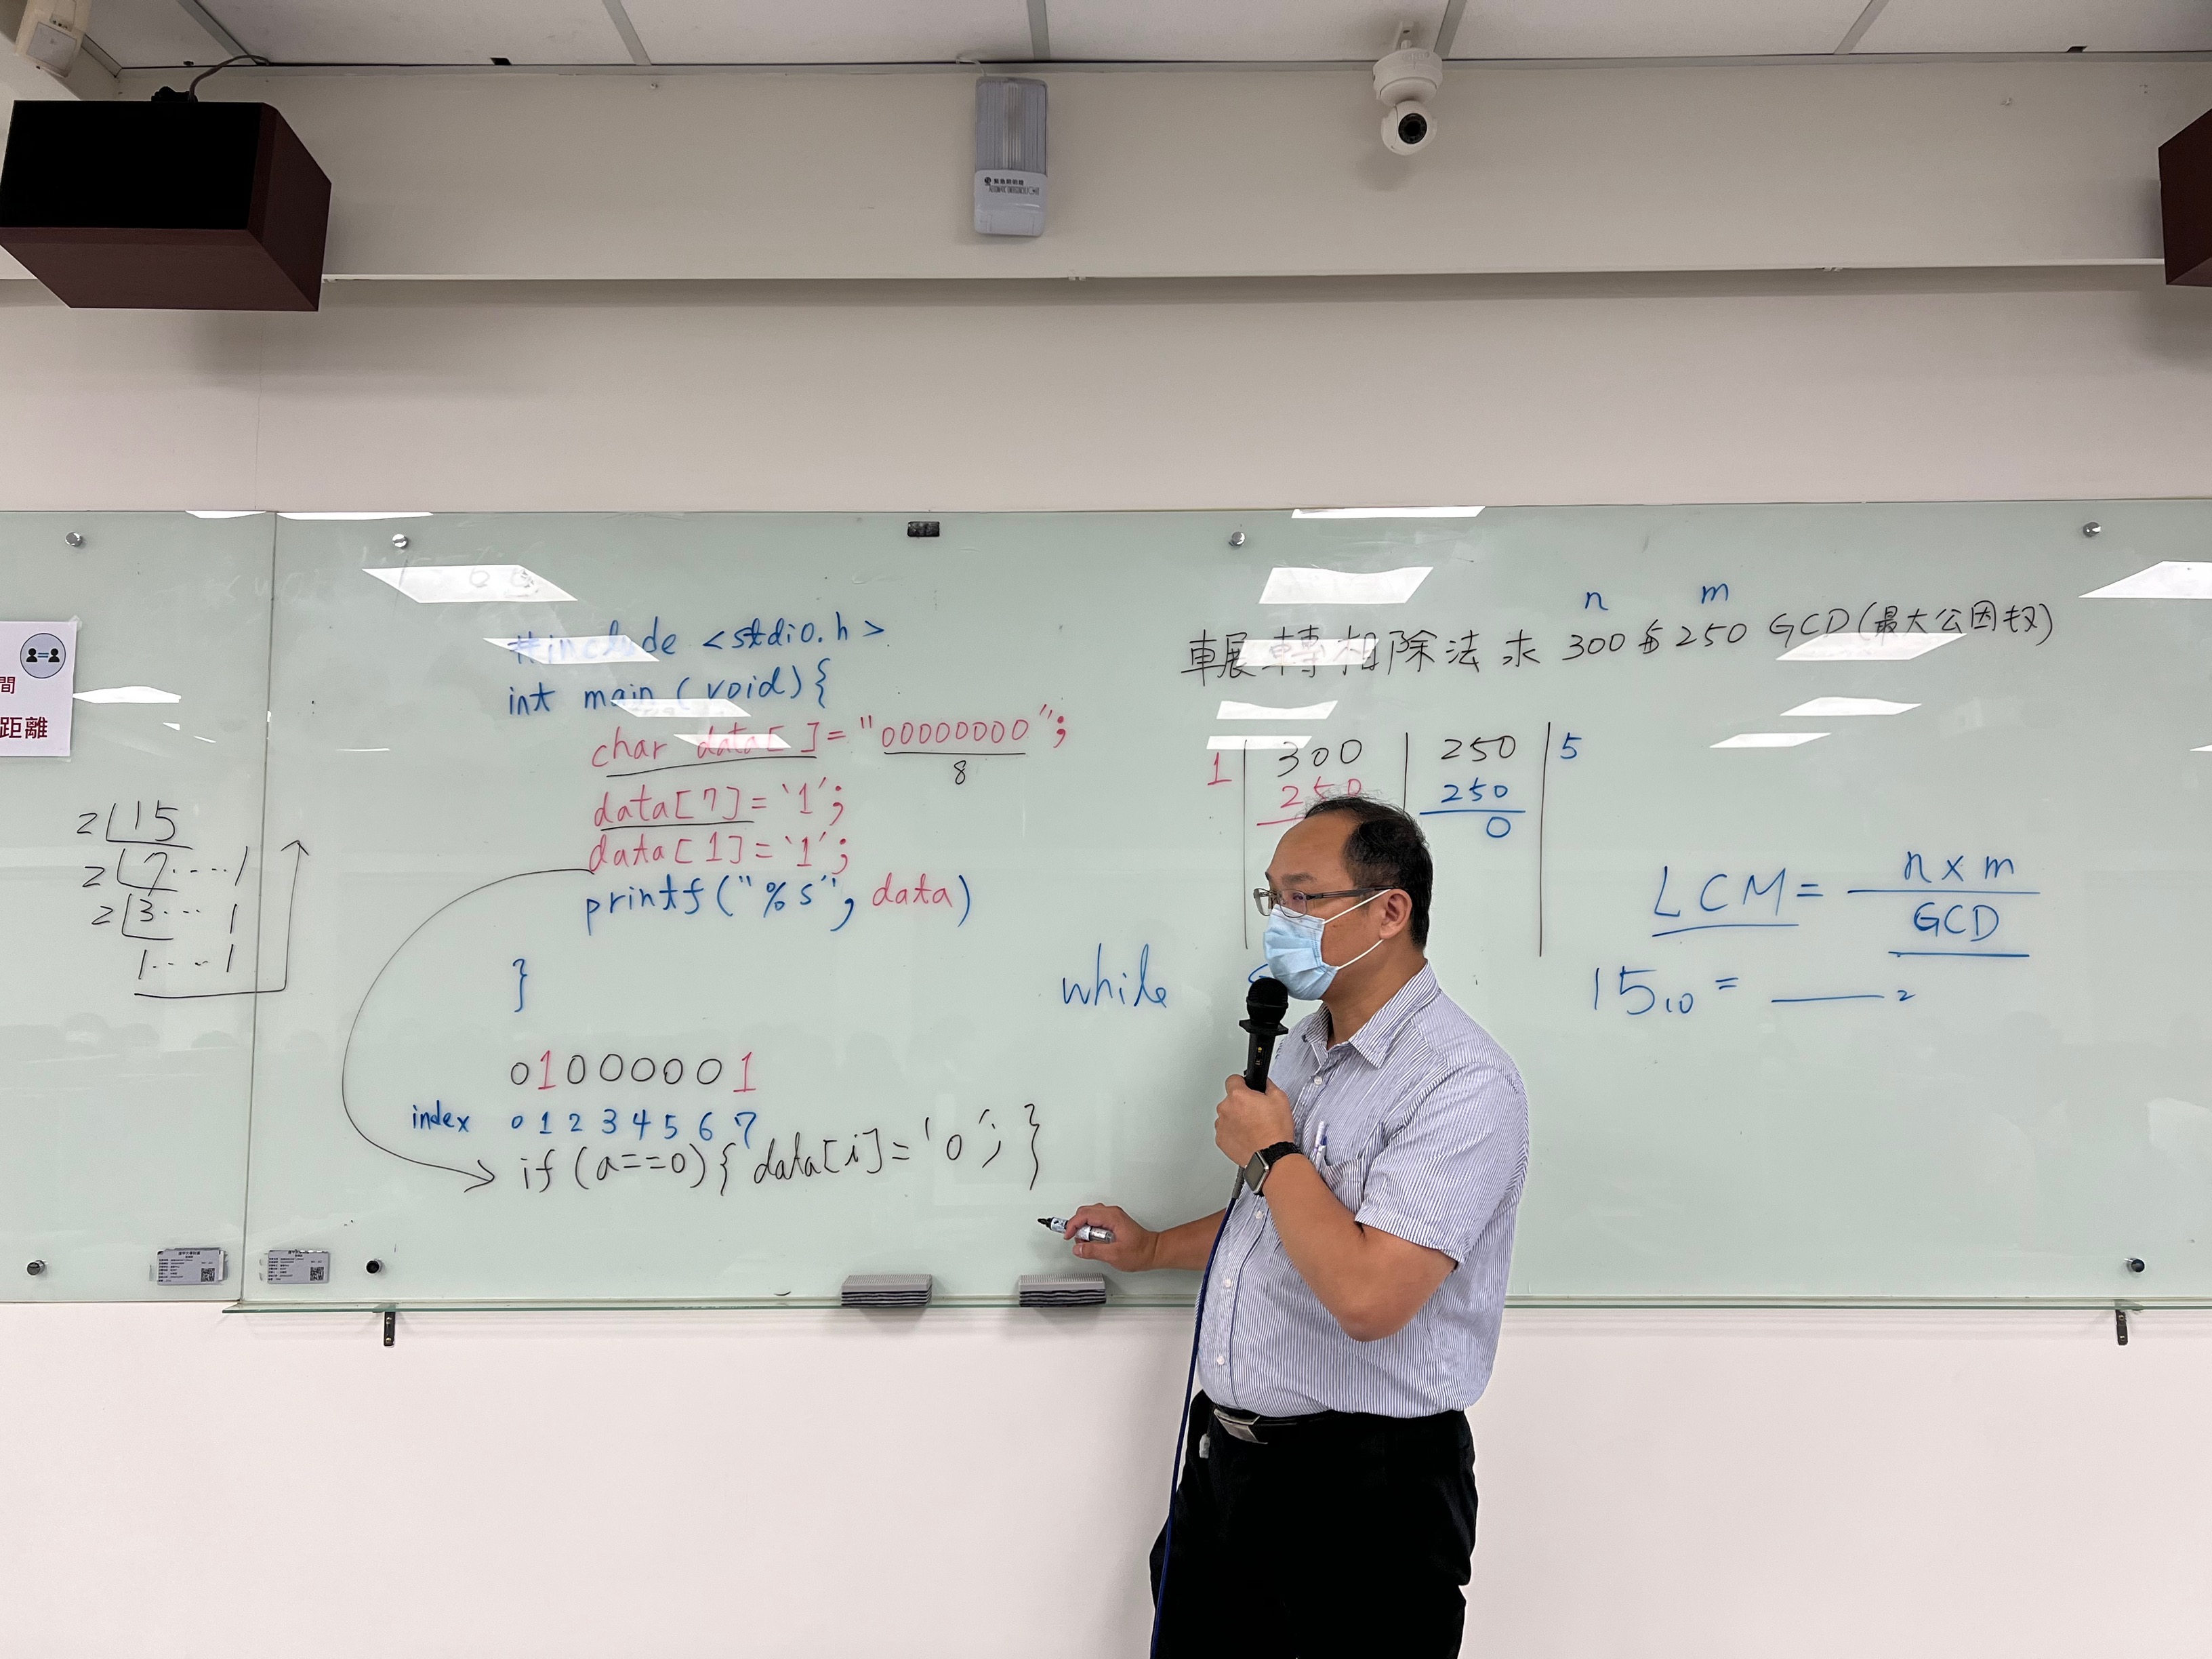 間
距離
2 15
2 7 ---- 1
2 3 --- 1
1 ---- 1
#include <stdio.h>
int main (void) {
char data[ ] = "00000000";
8
data[7] = '1';
data[1] = '1';
printf("%s", data)
}
01000001
index 0 1 2 3 4 5 6 7
if (a==0) { data[i] = '0'; }
while
n m
輾轉相除法求 300 & 250 GCD(最大公因数)
1 300 250 5
250 250
0
LCM = n x m
GCD
15₁₀ = ____ ₂
緊急照明燈